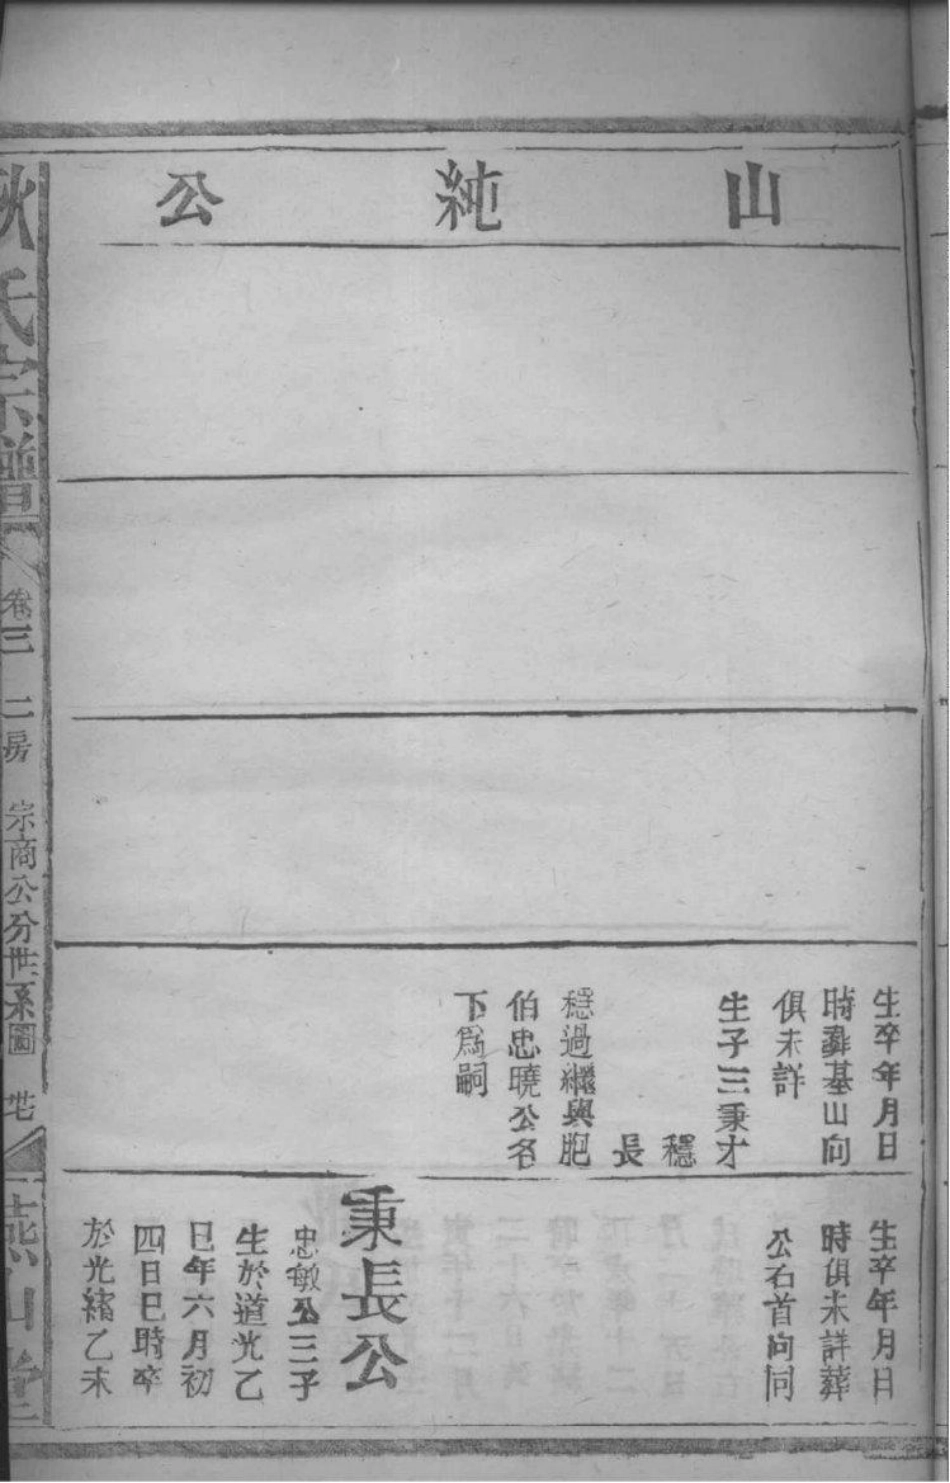 山純公
生卒年月日
時葬基山向
俱未詳
生子三秉才
穩
長
穩過繼與胞
伯忠曉公名
下爲嗣
生卒年月日
時俱未詳葬
公右首向同
秉長公
忠敏公三子
生於道光乙
巳年六月初
四日巳時卒
於光緒乙未
氏宗譜
卷三
二房
宗商公分世系圖
燕山